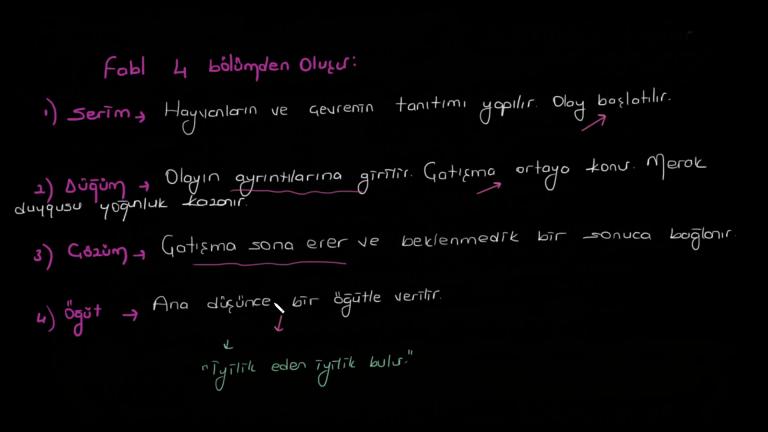 Fabl 4 bölümden Oluşur:
1) Serim → Hayvanların ve çevrenin tanıtımı yapılır. Olay başlatılır.
2) Düğüm → Olayın ayrıntılarına girilir. Çatışma ortaya konur. Merak
duygusu yoğunluk kazanır.
3) Çözüm → Çatışma sona erer ve beklenmedik bir sonuca bağlanır.
4) Öğüt → Ana düşünce bir öğütle verilir.
"İyilik eden iyilik bulur."